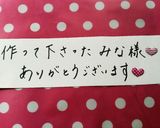 作って下さった みな様
ありがとうございます